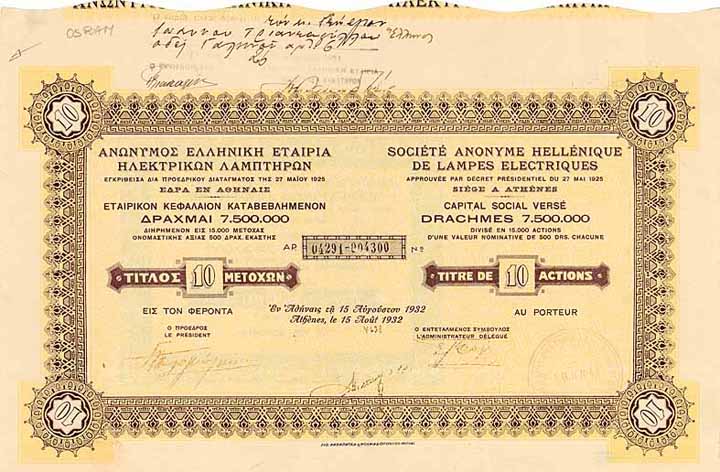 OSRAM
10
10
ΑΝΩΝΥΜΟΣ ΕΛΛΗΝΙΚΗ ΕΤΑΙΡΙΑ
ΗΛΕΚΤΡΙΚΩΝ ΛΑΜΠΤΗΡΩΝ
ΕΓΚΡΙΘΕΙΣΑ ΔΙΑ ΠΡΟΕΔΡΙΚΟΥ ΔΙΑΤΑΓΜΑΤΟΣ ΤΗΣ 27 ΜΑΪΟΥ 1925
ΕΔΡΑ ΕΝ ΑΘΗΝΑΙΣ
ΕΤΑΙΡΙΚΟΝ ΚΕΦΑΛΑΙΟΝ ΚΑΤΑΒΕΒΛΗΜΕΝΟΝ
ΔΡΑΧΜΑΙ 7.500.000
ΔΙΗΡΗΜΕΝΟΝ ΕΙΣ 15.000 ΜΕΤΟΧΑΣ
ΟΝΟΜΑΣΤΙΚΗΣ ΑΞΙΑΣ 500 ΔΡΑΧ. ΕΚΑΣΤΗΣ
SOCIÉTÉ ANONYME HELLÉNIQUE
DE LAMPES ELECTRIQUES
APPROUVÉE PAR DÉCRET PRÉSIDENTIEL DU 27 MAI 1925
SIÈGE A ATHÈNES
CAPITAL SOCIAL VERSÉ
DRACHMES 7.500.000
DIVISÉ EN 15.000 ACTIONS
D'UNE VALEUR NOMINATIVE DE 500 DRS. CHACUNE
ΑΡ. 04291-004300 Nº
ΤΙΤΛΟΣ 10 ΜΕΤΟΧΩΝ
TITRE DE 10 ACTIONS
ΕΙΣ ΤΟΝ ΦΕΡΟΝΤΑ
Ἐν Ἀθήναις τῇ 15 Αὐγούστου 1932
Athènes, le 15 Août 1932
AU PORTEUR
Ο ΠΡΟΕΔΡΟΣ
LE PRÉSIDENT
Ο ΕΝΤΕΤΑΛΜΕΝΟΣ ΣΥΜΒΟΥΛΟΣ
L'ADMINISTRATEUR DÉLÉGUÉ
10
10